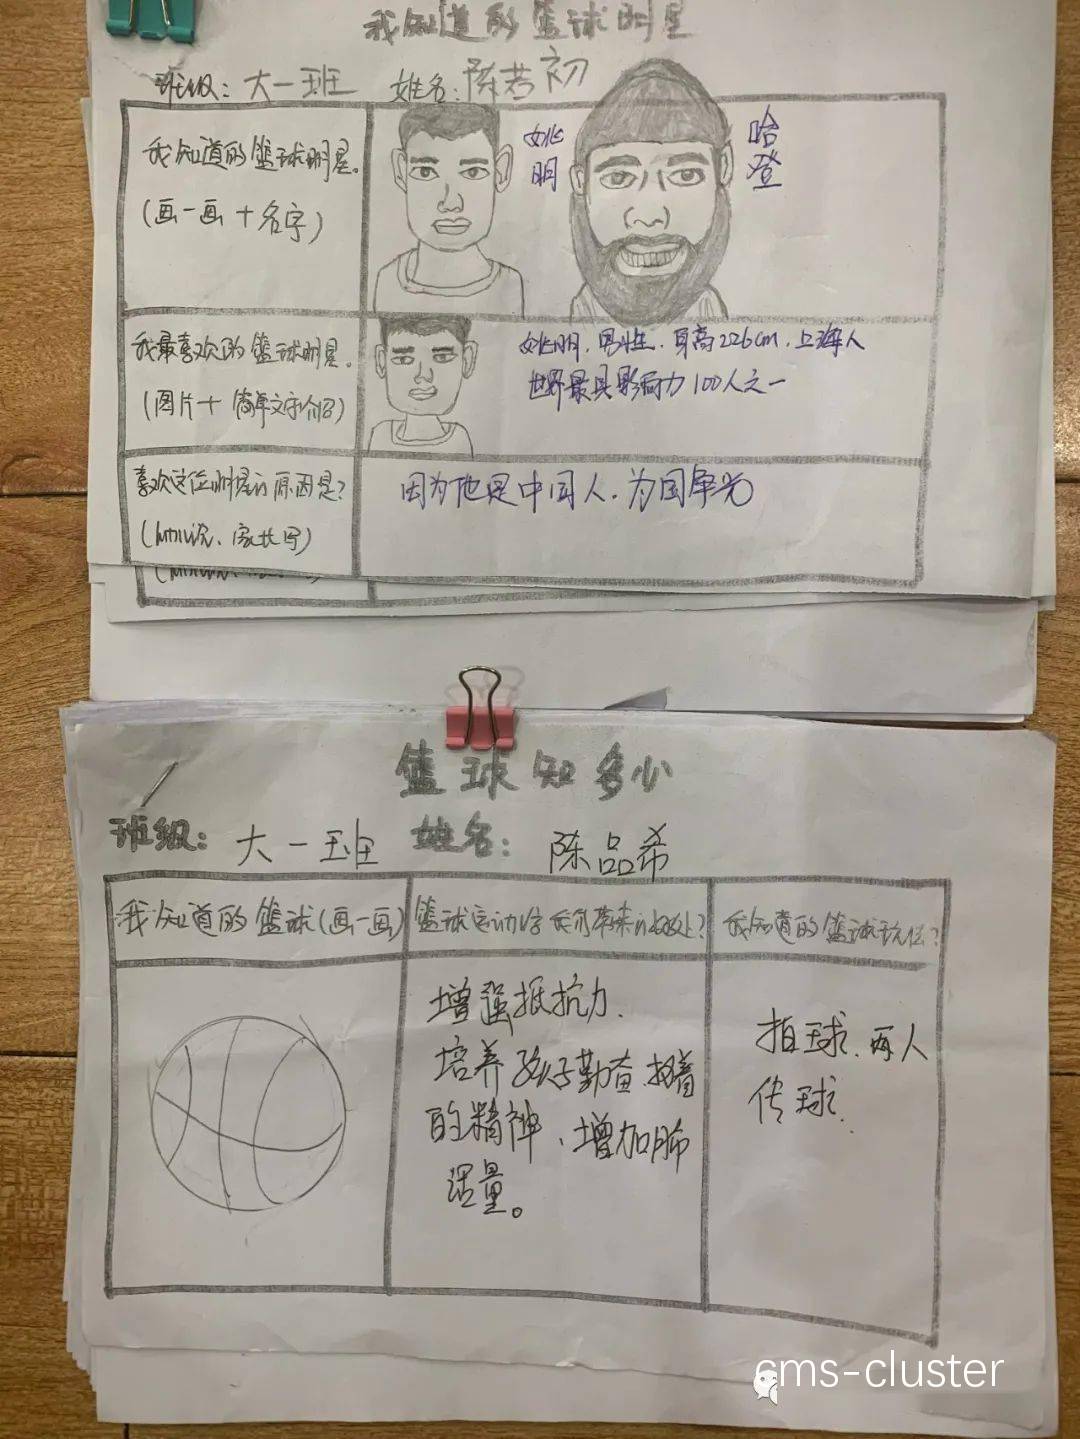 我知道的篮球明星
班级：大一班 姓名：陈若初
我知道的篮球明星。
(画一画+名字)
姚明
哈登
我最喜欢的篮球明星。
(图片+简单文字介绍)
姚明，男性，身高226cm，上海人
世界最具影响力100人之一
喜欢这位明星的原因是？
(幼儿说、家长写)
因为他是中国人，为国争光
篮球知多少
班级：大一班 姓名：陈品希
我知道的篮球(画一画)
篮球运动给我们带来的好处？
我知道的篮球玩法？
增强抵抗力、
培养孩子勤奋、
的精神、增加肺
活量。
拍球、两人
传球、
cms-cluster